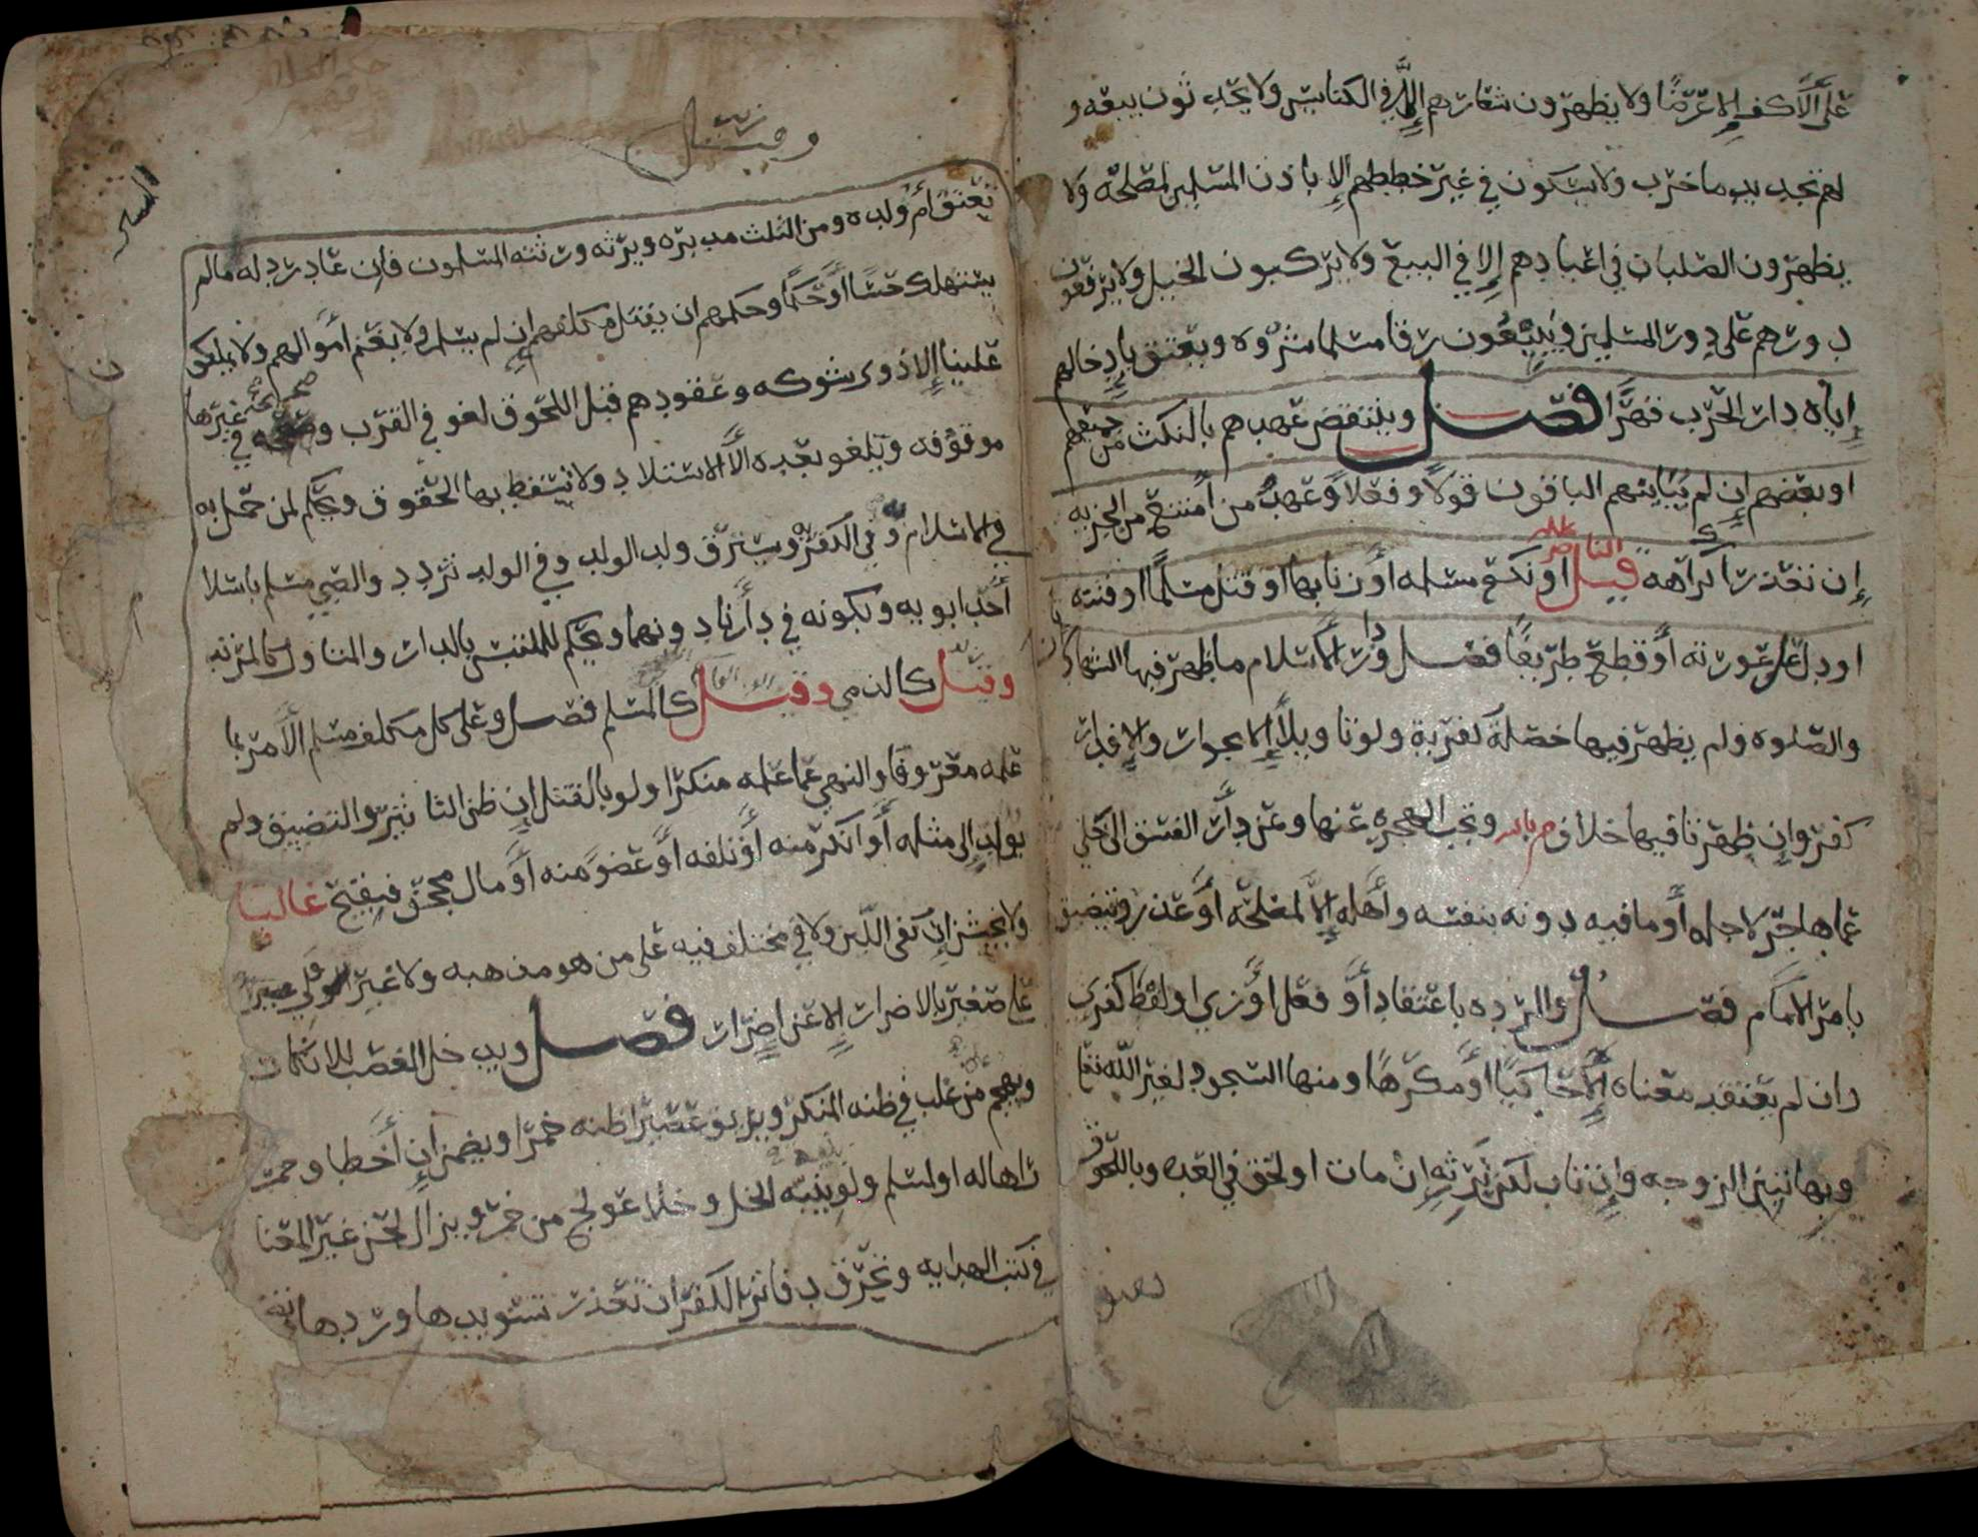 على الأكف إلا عرضًا ولا يظهرون شعارهم إلا في الكنايس ولا يحدثون بيعه و
لهم تجديد ما خرب ولا يسكنون في غير خططهم إلا بإذن المسلمين لمصلحه ولا
يظهرون الصلبان في اعيادهم إلا في البيع ولا يركبون الخيل ولا يرفعون
دورهم على دور المسلمين ويبيعون رقا مسلما شروه ويعتق بإدخالهم
إياه دار الحرب قهرًا فصل وينتقض عهدهم بالنكث من جميعهم
او بعضهم إن لم يباينهم الباقون قولًا وفعلًا وعهد من امتنع من الجزيه
إن تعذر اكراهه قيل او نكح مسلمه أو زنا بها او قتل مسلمًا او فتنه
او دل على عورته أو قطع طريقًا فصل ودار الإسلام ما ظهر فيها الشهادتان
والصلوه ولم يظهر فيها خصلة كفرية ولو تاويلًا إلا بجوار والا فدار
كفر وإن ظهرتا فيها خلاف م بالله وتجب الهجره عنها وعن دار الفسق الى خلي
عما هاجر لاجله أو ما فيه دونه بنفسه وأهله إلا لمصلحه أو عذر وتتضيق
بامر الإمام فصل والرده باعتقاد أو فعل أو زي او لفظ كفري
وان لم يعتقد معناه إلا حاكيًا أو مكرهًا ومنها السجود لغير الله تعا
وبها تبين الزوجه وإن تاب لكن ترثه إن مات او لحق في العده وباللحوق
تعتق
وقيل
تعتق أم ولده ومن الثلث مدبره ويرثه ورثته المسلمون فإن عاد رد له مالم
يستهلك حسًا أو حكمًا وحكمهم ان يقتل مكلفهم إن لم يسلم ولا يغنم أموالهم ولا يملكون
علينا إلا ذوي شوكه وعقودهم قبل اللحوق لغو في القرب وصحيحه في غيرها
موقوفه وتلغو بعده الا الاستيلاد ولا تسقط بها الحقوق ويحكم لمن حمل به
في الاسلام به وفي الكفر به ويسترق ولد الولد وفي الولد تردد والصبي مسلم باسلام
أحد ابويه وبكونه في دارنا دونهما ويحكم للملتبس بالدار والمتاول كالمرتد
وقيل كالذمي وقيل كالمسلم فصل وعلى كل مكلف مسلم الأمر بما
علمه معروفا والنهي عما علمه منكرا ولو بالقتل إن ظن التاثير والتضييق ولم
يؤد إلى مثله أو انكر منه أو تلفه أو عضو منه أو مال مجحف فيقبح غالبا
ولا يخشن إن كفى اللين ولا في مختلف فيه على من هو مذهبه ولا غير الولي
على صغير بالاضرار إلا عن اضرار فصل ويدخل الغصب للانكار
ويهجم من غلب في ظنه المنكر ويريق عصيرا ظنه خمرا ويضمن إن أخطا وخمر
راها له او لمسلم ولو بنيه الخل وخلا عولج من خمر ويزال لحن غير المعنا
في كتب الهدايه وتحرق دفاتر الكفر ان تعذر تسويدها وردها